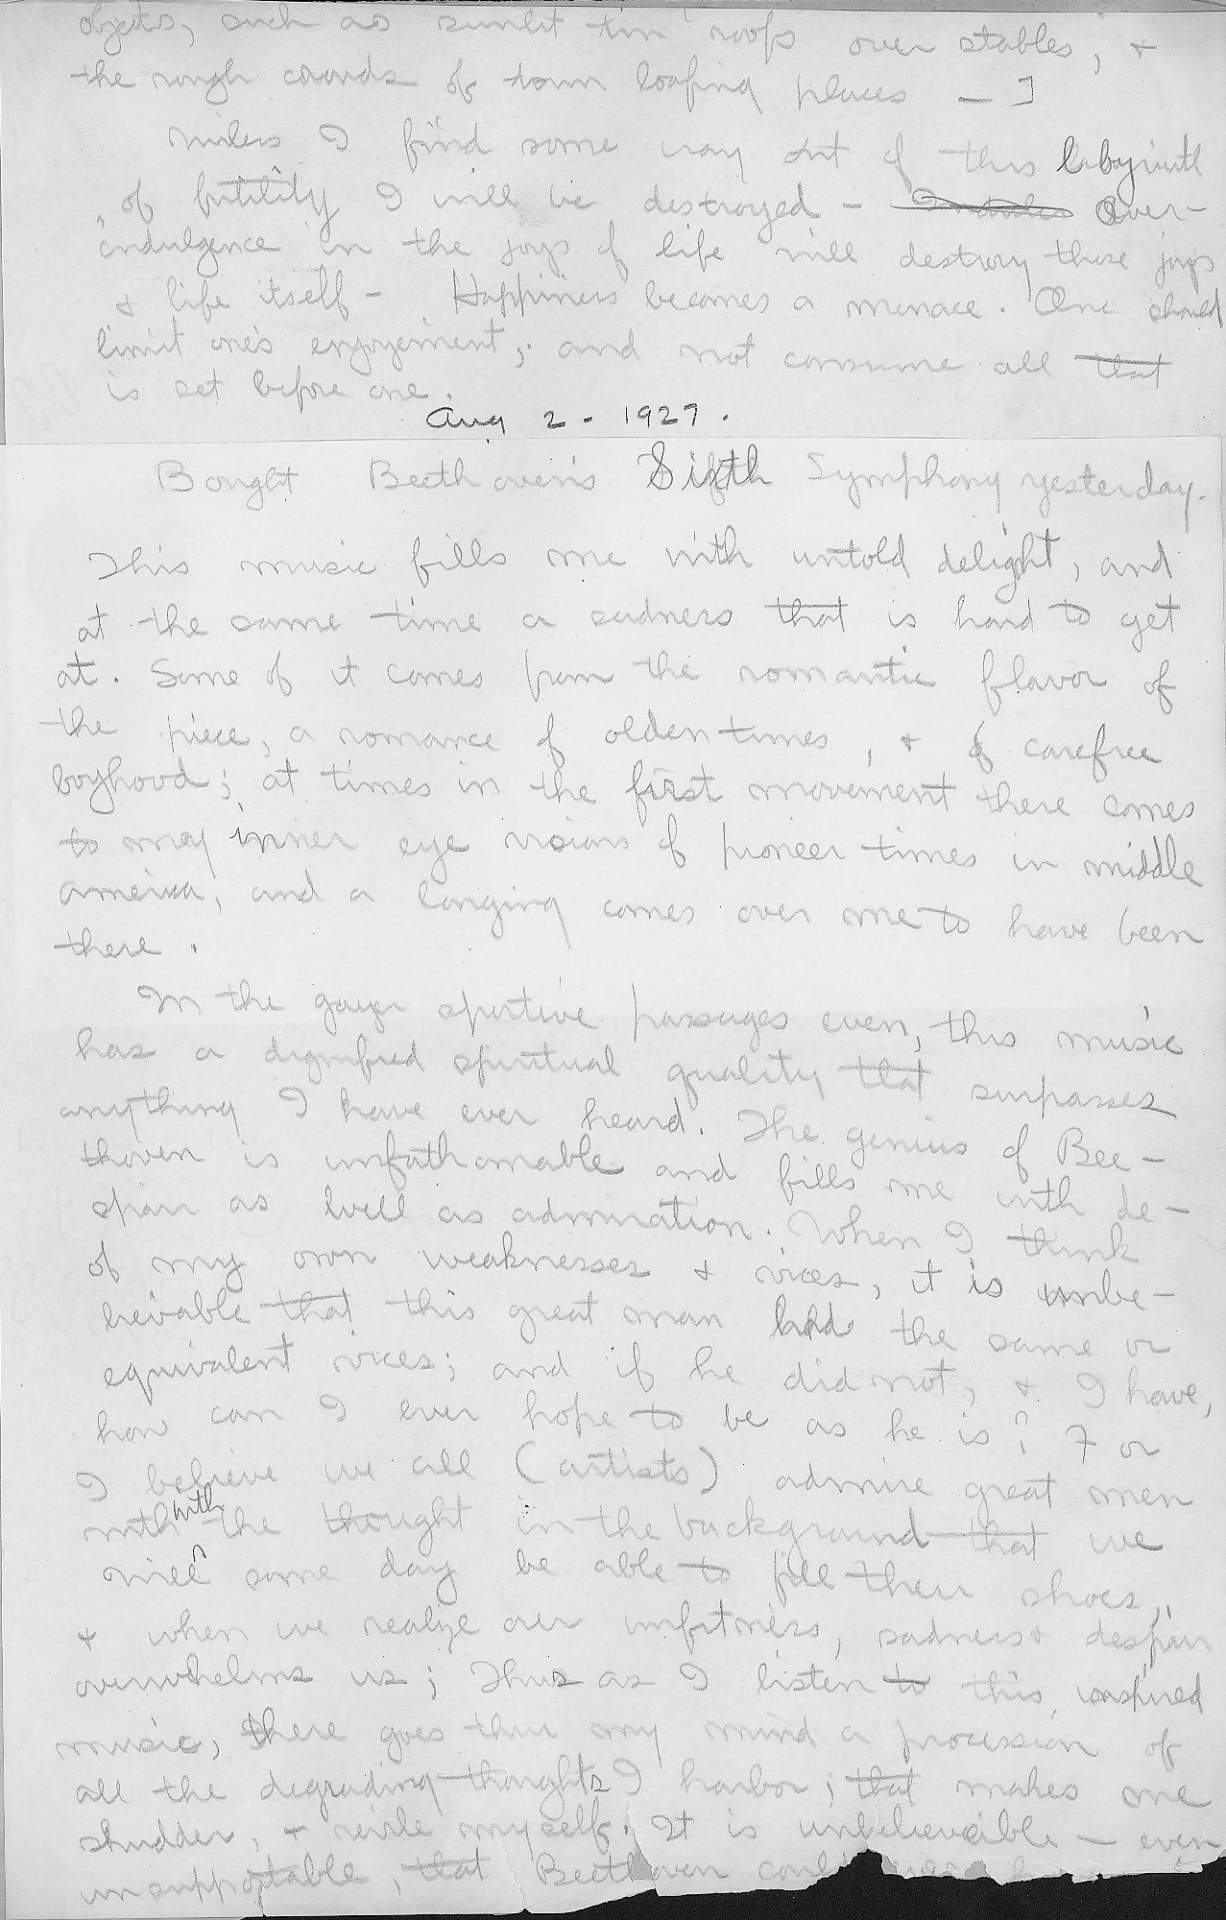 objects, such as sunlit tin roofs over stables, &
the rough crowds of town loafing places — ]
Unless I find some way out of this labyrinth
of futility I will be destroyed – Over-
indulgence in the joys of life will destroy those joys
& life itself – Happiness becomes a menace. One should
limit one's enjoyment, and not consume all that
is set before one.
Aug 2 - 1927.
Bought Beethoven's Symphony yesterday.
This music fills me with untold delight, and
at the same time a sadness that is hard to get
at. Some of it comes from the romantic flavor of
the piece, a romance of olden times, & of carefree
boyhood; at times in the first movement there comes
to my inner eye visions of pioneer times in middle
America, and a longing comes over me to have been
there.
In the gayer sportive passages even, this music
has a dignified spiritual quality that surpasses
anything I have ever heard. The genius of Bee-
thoven is unfathomable and fills me with de-
spair as well as admiration. When I think
of my own weaknesses & vices, it is unbe-
lievable that this great man had the same or
equivalent vices; and if he did not, & I have,
how can I ever hope to be as he is? For
I believe we all (artists) admire great men
with the thought in the background that we
will some day be able to fill their shoes,
& when we realize our unfitness, sadness & despair
overwhelms us; Thus as I listen to this inspired
music, there goes thru my mind a procession of
all the degrading thoughts I harbor; that makes me
shudder, & revile myself. It is unbelievable — even
unsupportable, that Beethoven could